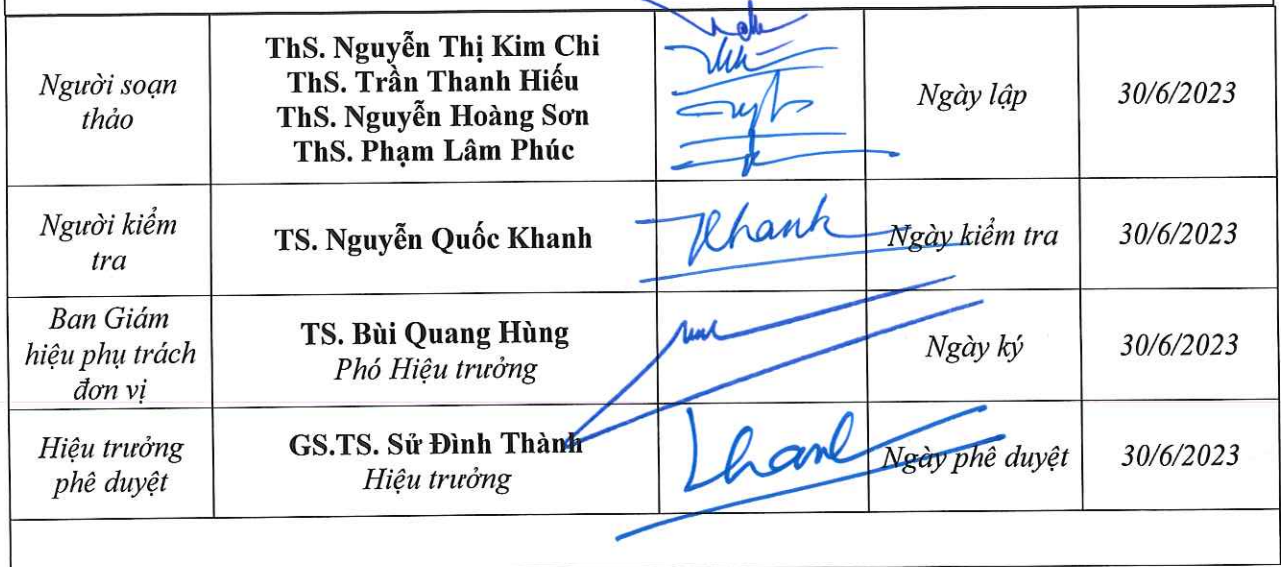 Người soạn thảo
ThS. Nguyễn Thị Kim Chi
ThS. Trần Thanh Hiếu
ThS. Nguyễn Hoàng Sơn
ThS. Phạm Lâm Phúc
Ngày lập
30/6/2023
Người kiểm tra
TS. Nguyễn Quốc Khanh
Khanh
Ngày kiểm tra
30/6/2023
Ban Giám
hiệu phụ trách
đơn vị
TS. Bùi Quang Hùng
Phó Hiệu trưởng
Ngày ký
30/6/2023
Hiệu trưởng
phê duyệt
GS.TS. Sử Đình Thành
Hiệu trưởng
Ngày phê duyệt
30/6/2023